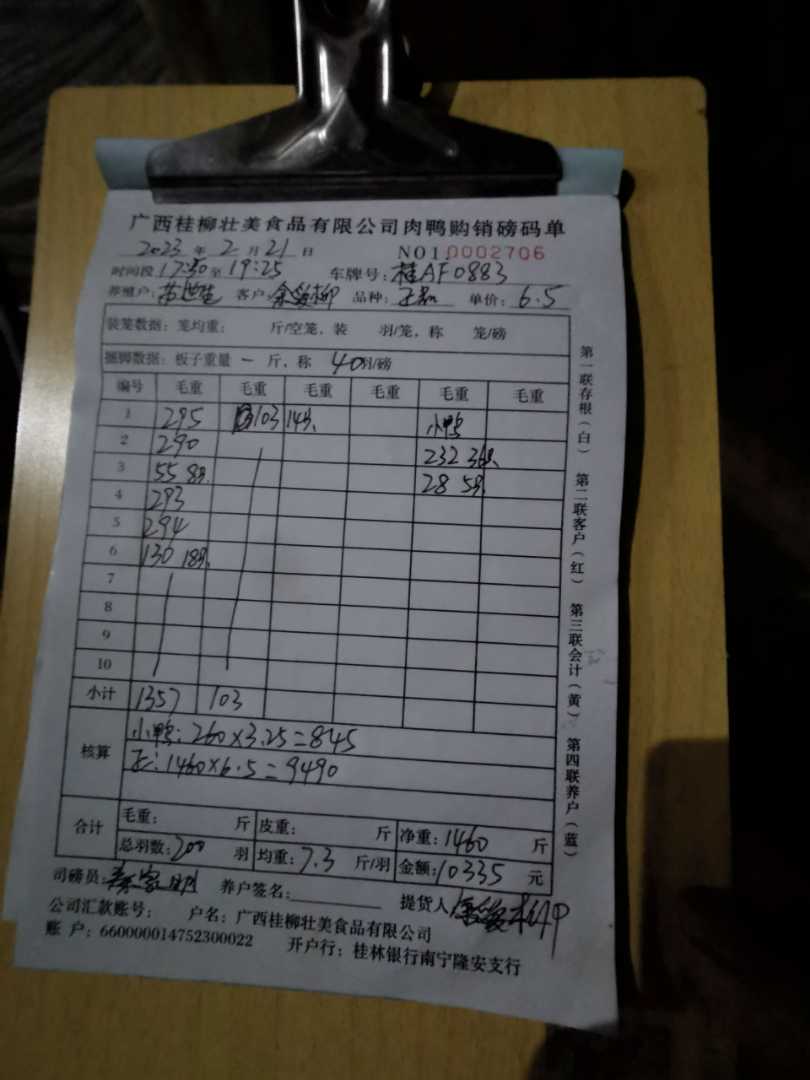 广西桂柳壮美食品有限公司肉鸭购销磅码单
2023 年 2 月 21 日 NO1:0002706
时间段 17:30 至 19:25 车牌号: 桂AF0883
养殖户: 客户: 品种: 单价: 6.5
装笼数据: 笼均重: 斤/空笼, 装 羽/笼, 称 笼/磅
捆脚数据: 板子重量 一 斤, 称 40羽/磅
编号 毛重 毛重 毛重 毛重 毛重 毛重
1 295 103 14只 小鸭
2 290 232 36只
3 55 8只 28 5只
4 293
5 294
6 130 18只
7
8
9
10
小计 1357 103
核算 小鸭: 260×3.25=845
正: 1460×6.5=9490
合计 毛重: 斤 皮重: 斤 净重: 1460 斤
总羽数: 200 羽 均重: 7.3 斤/羽 金额: 10335 元
司磅员: 养户签名: 提货人
公司汇款账号: 户名: 广西桂柳壮美食品有限公司
账户: 660000014752300022 开户行: 桂林银行南宁隆安支行
第一联存根(白) 第二联客户(红) 第三联会计(黄) 第四联养户(蓝)